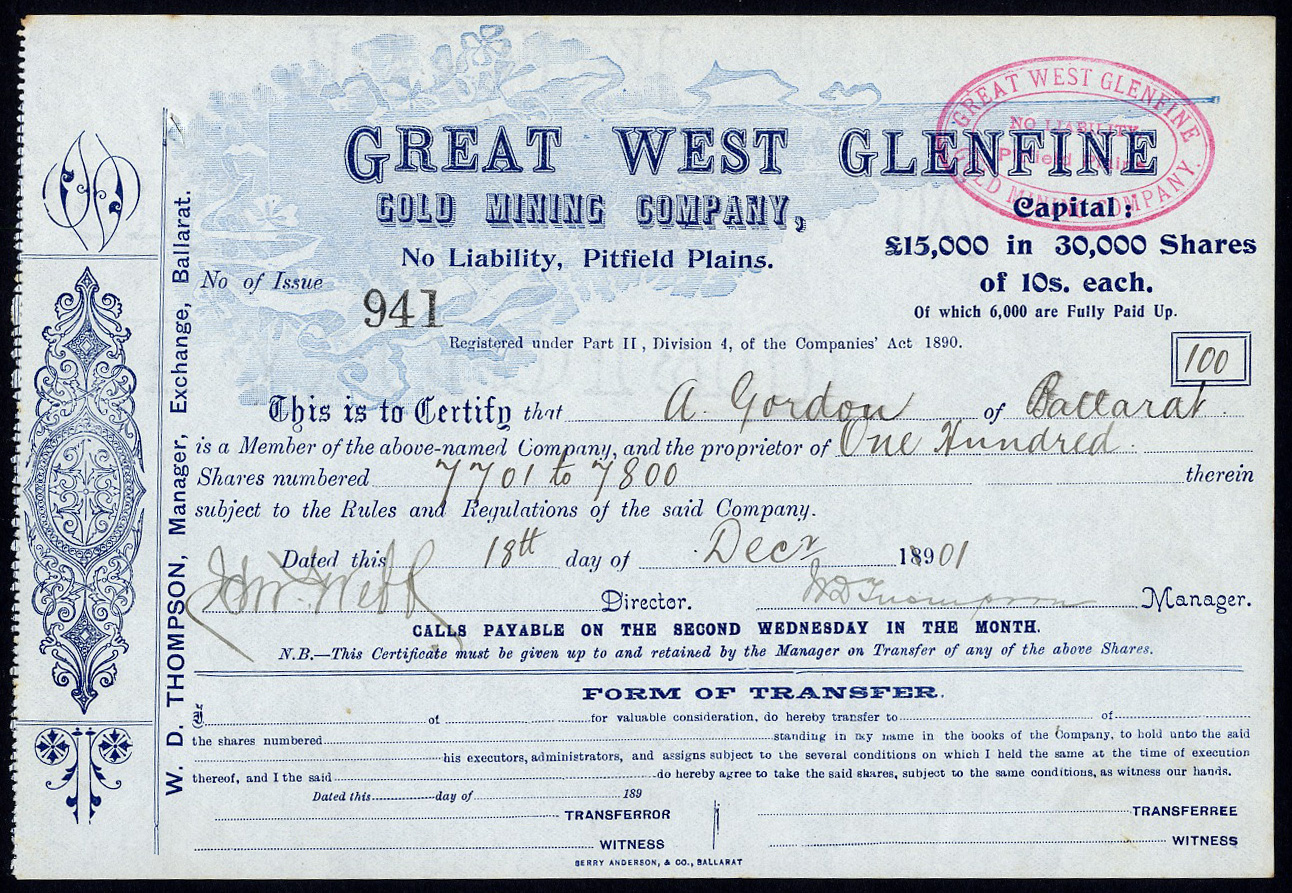 GREAT WEST GLENFINE
GOLD MINING COMPANY,
No Liability, Pitfield Plains.
GREAT WEST GLENFINE
NO LIABILITY
Pitfield Plains
GOLD MINING COMPANY.
Capital:
£15,000 in 30,000 Shares
of 10s. each.
Of which 6,000 are Fully Paid Up.
No of Issue
941
Registered under Part II, Division 4, of the Companies' Act 1890.
100
This is to Certify that A. Gordon of Ballarat
is a Member of the above-named Company, and the proprietor of One Hundred
Shares numbered 7701 to 7800 therein
subject to the Rules and Regulations of the said Company.
Dated this 18th day of Decr 18901
Jno. Webb Director. WD Thompson Manager.
CALLS PAYABLE ON THE SECOND WEDNESDAY IN THE MONTH.
N.B.—This Certificate must be given up to and retained by the Manager on Transfer of any of the above Shares.
FORM OF TRANSFER.
I of for valuable consideration, do hereby transfer to of
the shares numbered standing in my name in the books of the Company, to hold unto the said
his executors, administrators, and assigns subject to the several conditions on which I held the same at the time of execution
thereof, and I the said do hereby agree to take the said shares, subject to the same conditions, as witness our hands.
Dated this day of 189
TRANSFERROR TRANSFEREE
WITNESS WITNESS
BERRY ANDERSON, & CO., BALLARAT
W. D. THOMPSON, Manager, Exchange, Ballarat.